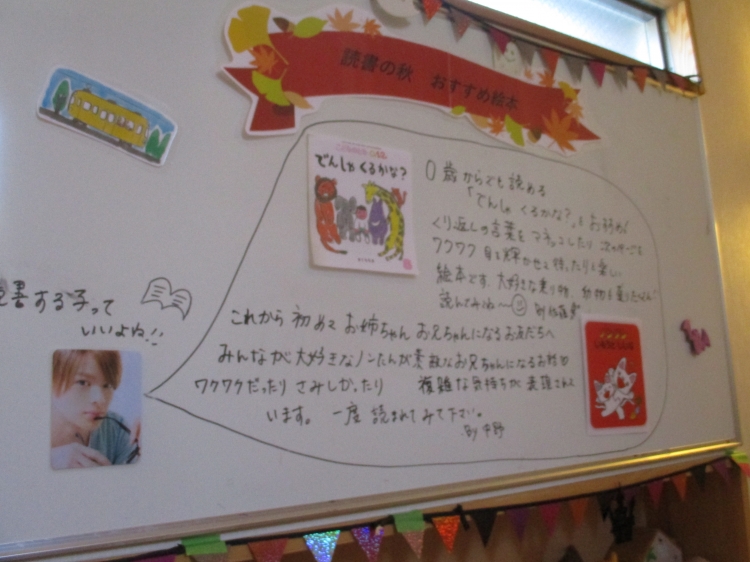 読書の秋 おすすめ絵本
でんしゃくるかな?
0歳からでも読める
「でんしゃくるかな?」も お勧め!
くり返しの言葉をマネっこしたり 次のページを
ワクワク 目を輝かせて待ったりと楽しい
絵本です。大好きな乗り物、動物も
読んでみてね〜
書する子って
いいよね!!
これから初めて お姉ちゃん お兄ちゃんになるお友だちへ
みんなが大好きなノンたんが素敵なお兄ちゃんになるお話や
ワクワクだったり さみしかったり 複雑な気持ちが表現されて
います。 一度 読まれてみて下さい。
By 中野